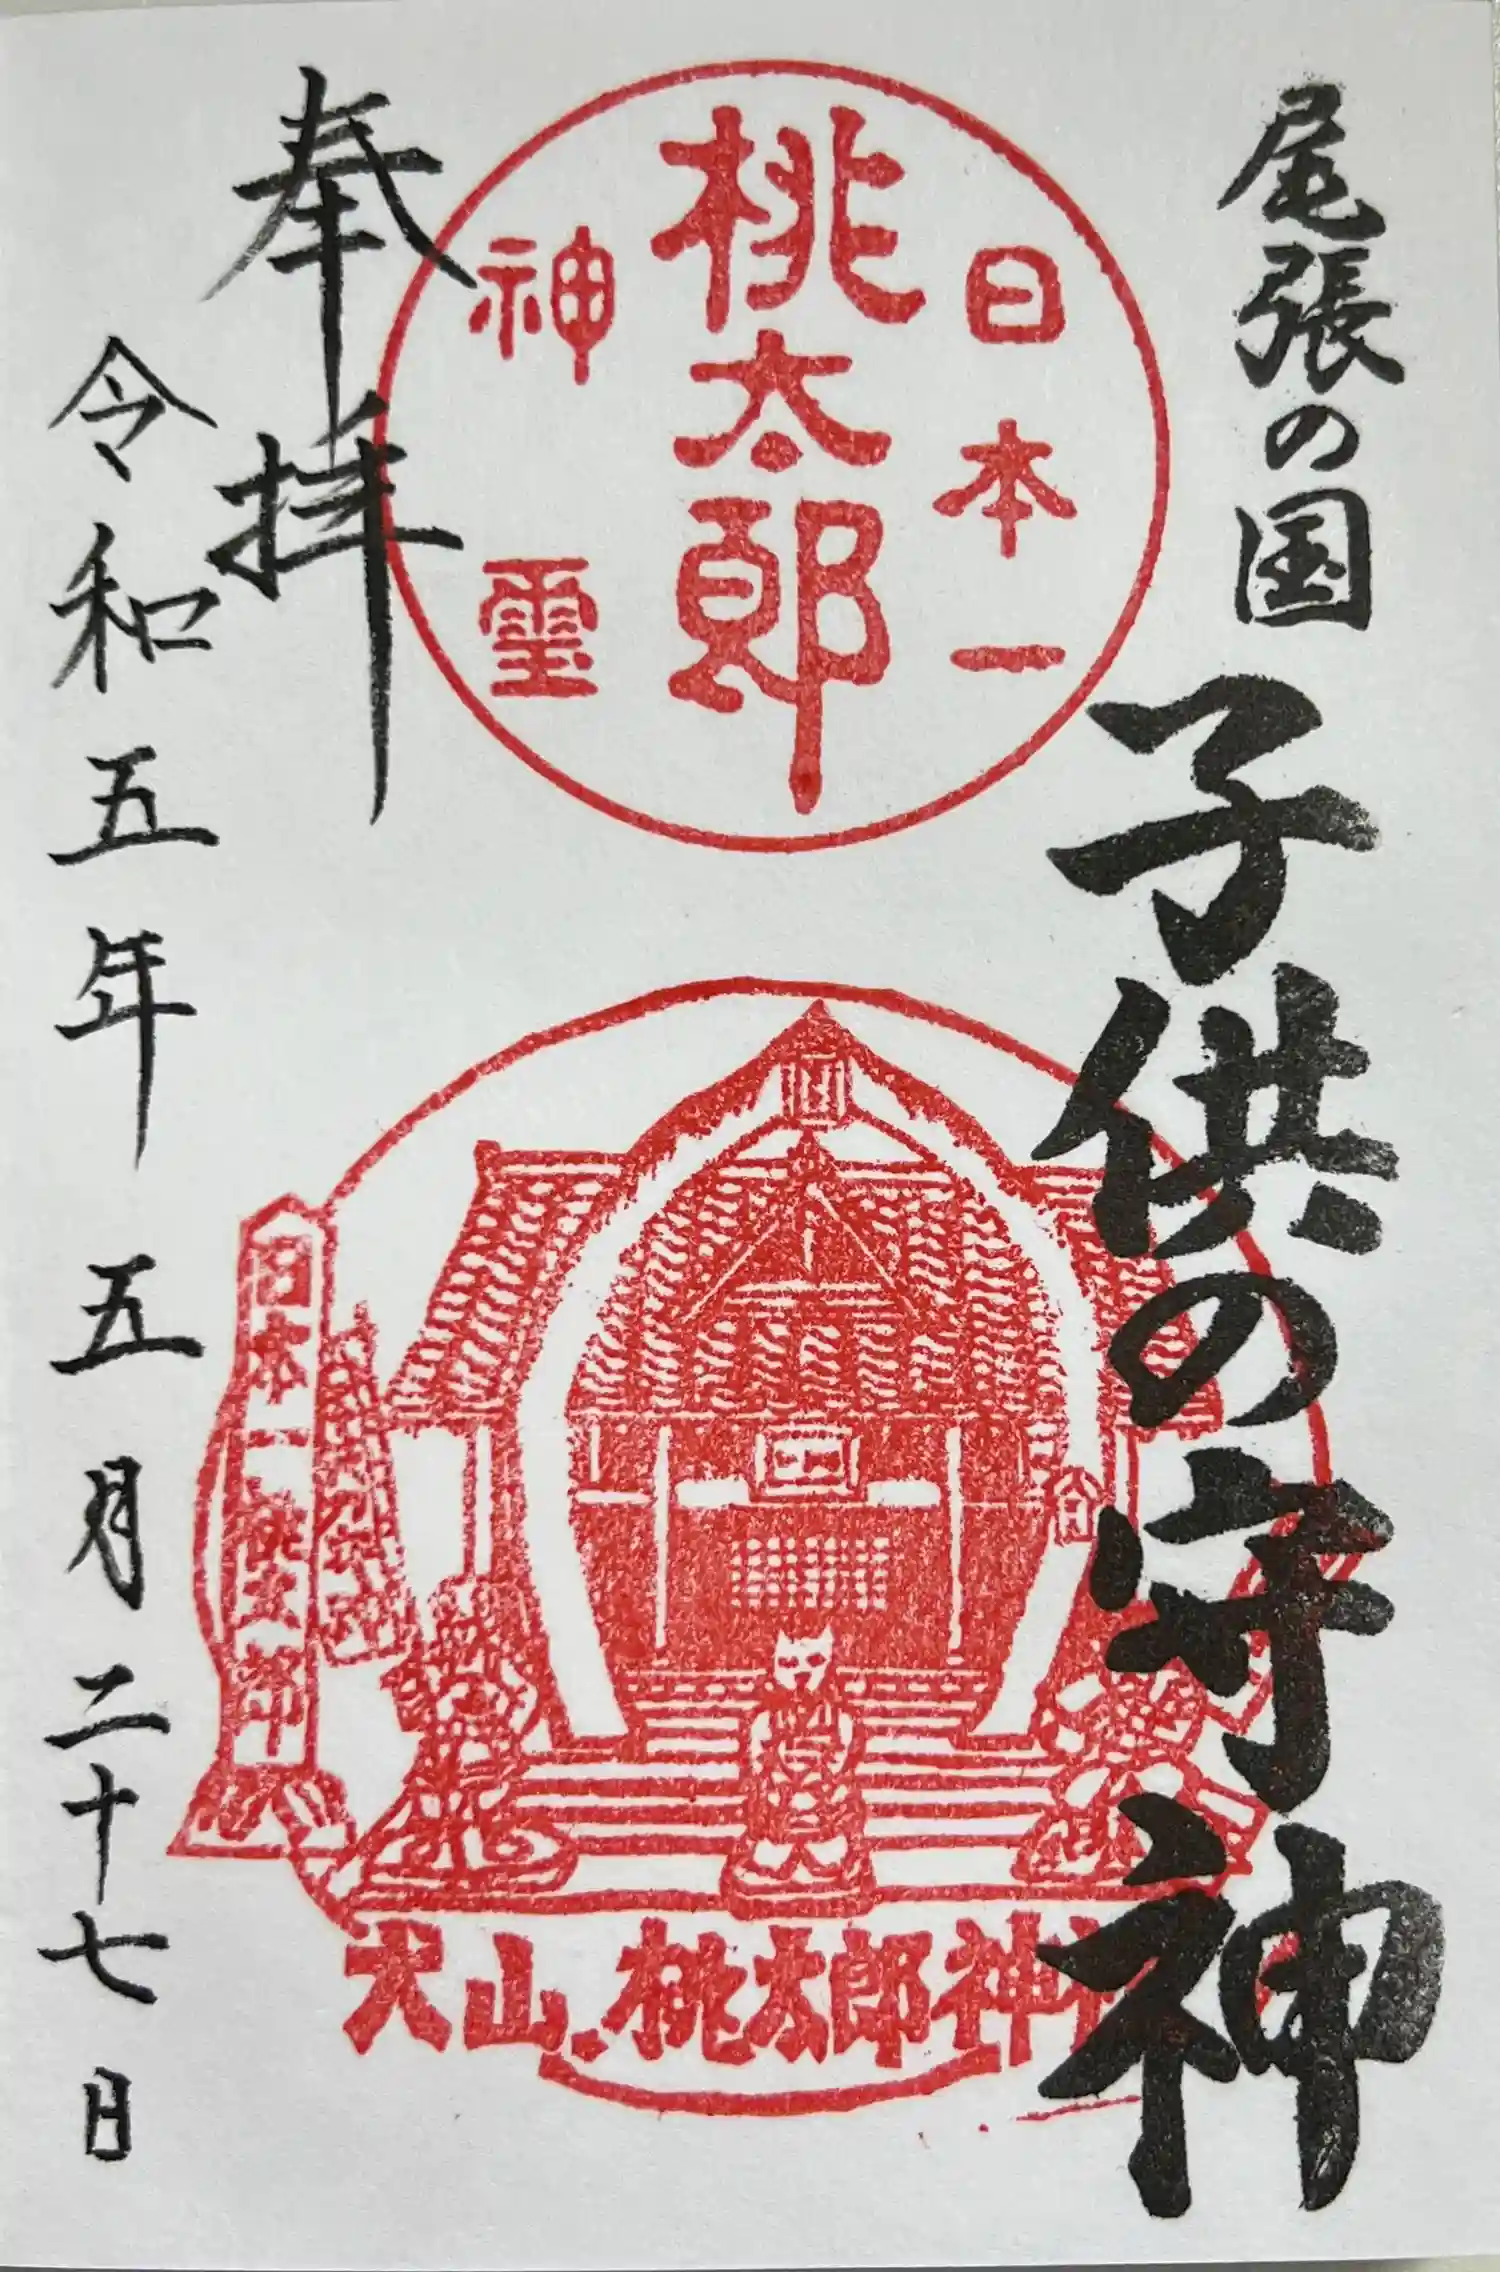 尾張の国
子供の守神
日本一
桃太郎
神霊
奉拝
令和五年五月二十七日
日本一桃太郎
犬山.桃太郎神